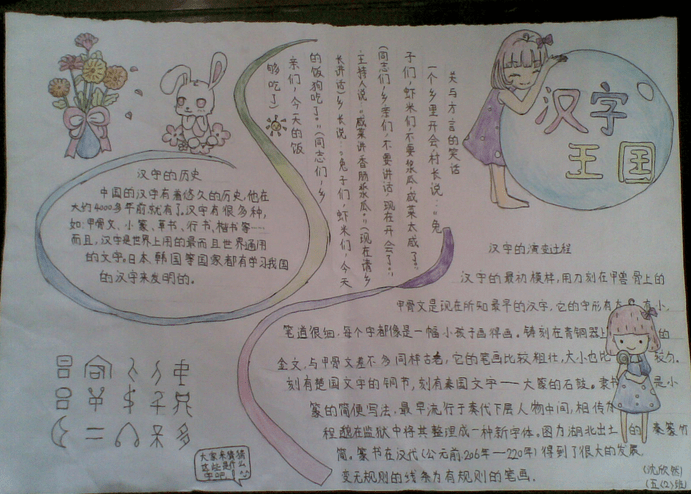 汉字
王国
汉字的历史
中国的汉字有着悠久的历史,他在
大约4000多年前就有了,汉字有很多种,
如:甲骨文、小篆、草书、行书、楷书等…
而且,汉字是世界上用的最而且世界通用
的文字,日本、韩国等国家都有学习我国
的汉字来发明的。
关与方言的笑话
一个乡里开会,村长说:“兔
子们,虾米们,不要浆瓜,咸菜太咸了。”
(同志们,乡亲们,不要讲话,现在开会了。)
主持人说:“咸菜请香肠浆瓜。”(现在请乡
长讲话)乡长说:“兔子们,虾米们,今天
的饭狗吃了。”(同志们,乡
亲们,今天的饭
够吃了)
汉字的演变过程
汉字的最初模样,用刀刻在甲兽骨上的
甲骨文是现在所知最早的汉字,它的字形有 小,
笔道很细,每个字都像是一幅小孩子画得画。铸刻在青铜器上 的
金文,与甲骨文差不多同样古老,它的笔画比较粗壮,大小也比
刻有楚国文字的铜节,刻有秦国文字——大篆的石鼓。隶书 是小
篆的简便写法,最早流行于秦代下层人物中间,相传
程邈在监狱中将其整理成一种新字体。图为湖北出土的 秦篆竹
简。篆书在汉代(公元前206年—220年)得到了很大的发展,
变无规则的线条为有规则的笔画。
大家来猜猜
这些是什么
字吧
(沈欣然)
(五(2)班)